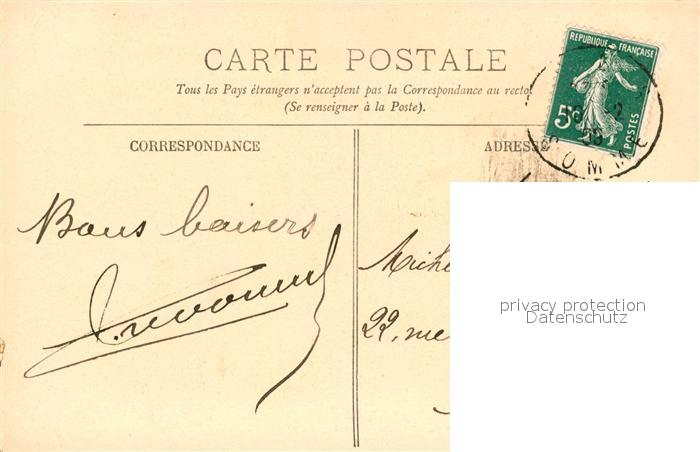 CARTE POSTALE
Tous les Pays étrangers n'acceptent pas la Correspondance au recto.
(Se renseigner à la Poste).
RÉPUBLIQUE FRANÇAISE
5c
POSTES
SOMME
CORRESPONDANCE
ADRESSE
Bons baisers
Miche
22, rue
privacy protection
Datenschutz